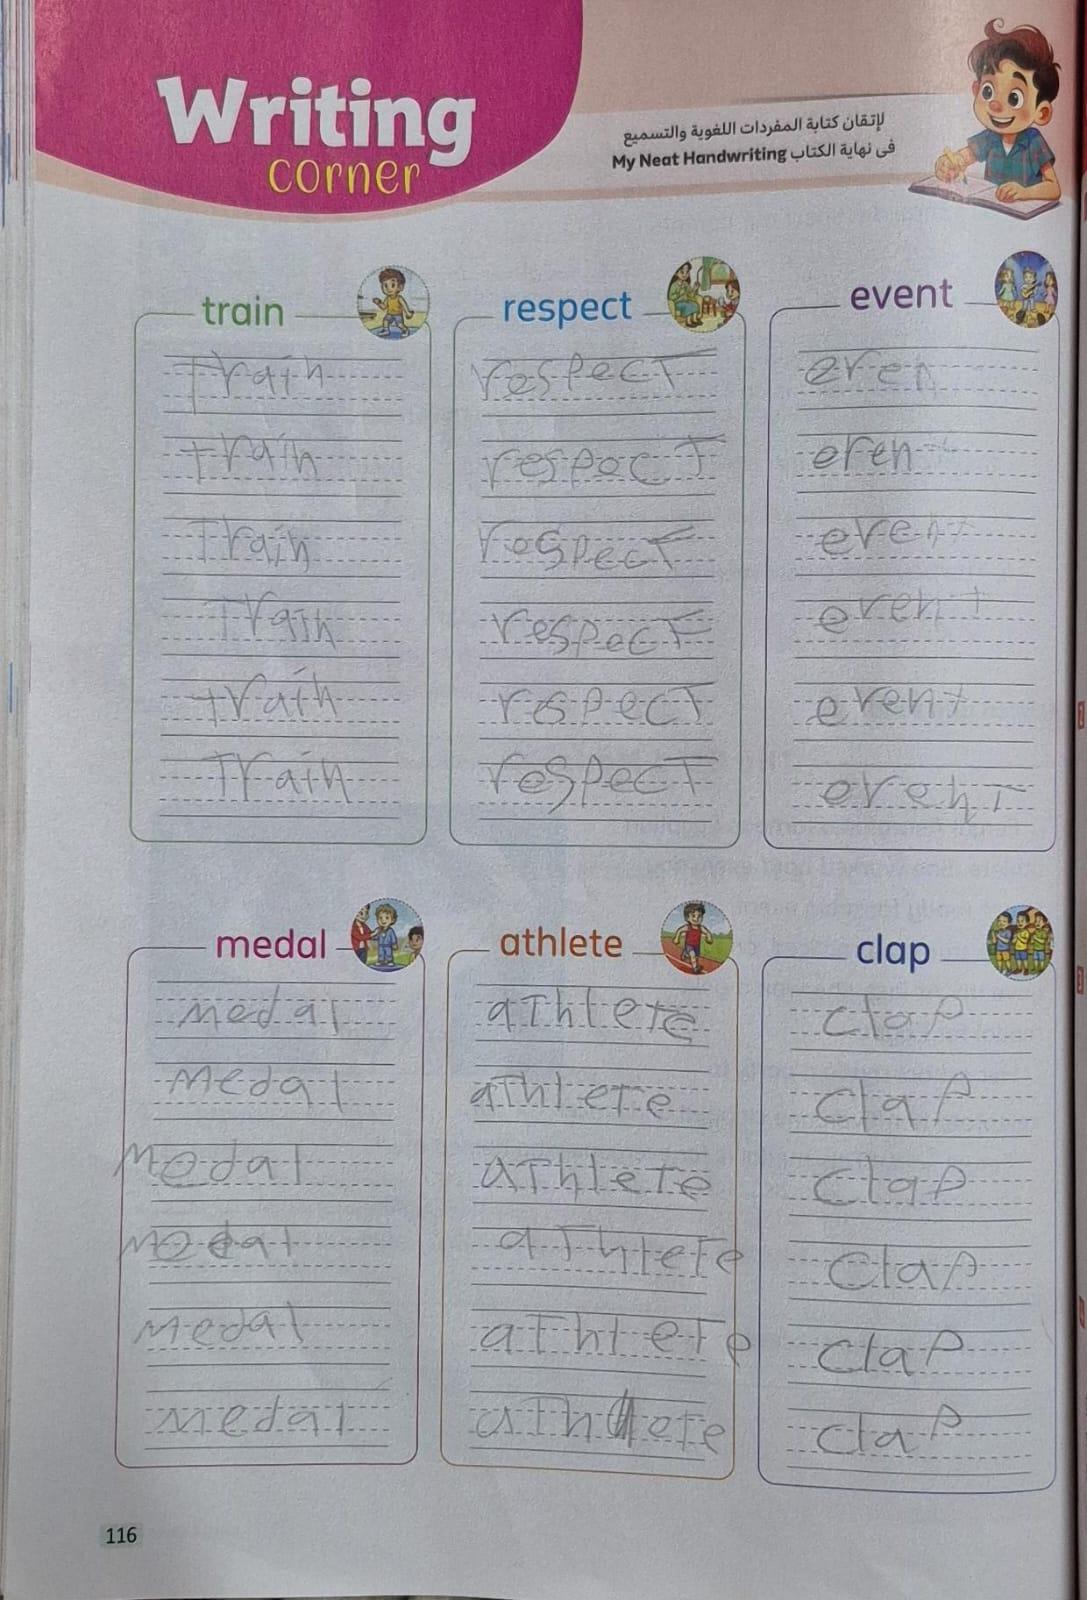 Writing
corner
لإتقان كتابة المفردات اللغوية والتسميع
فى نهاية الكتاب My Neat Handwriting
train
train
train
train
train
train
train
respect
respect
respect
respect
respect
respect
respect
event
even
event
event
event
event
event
medal
medal
medal
medal
medal
medal
medal
athlete
athlete
athlete
athlete
athlete
athlete
athlete
clap
clap
clap
clap
clap
clap
clap
116